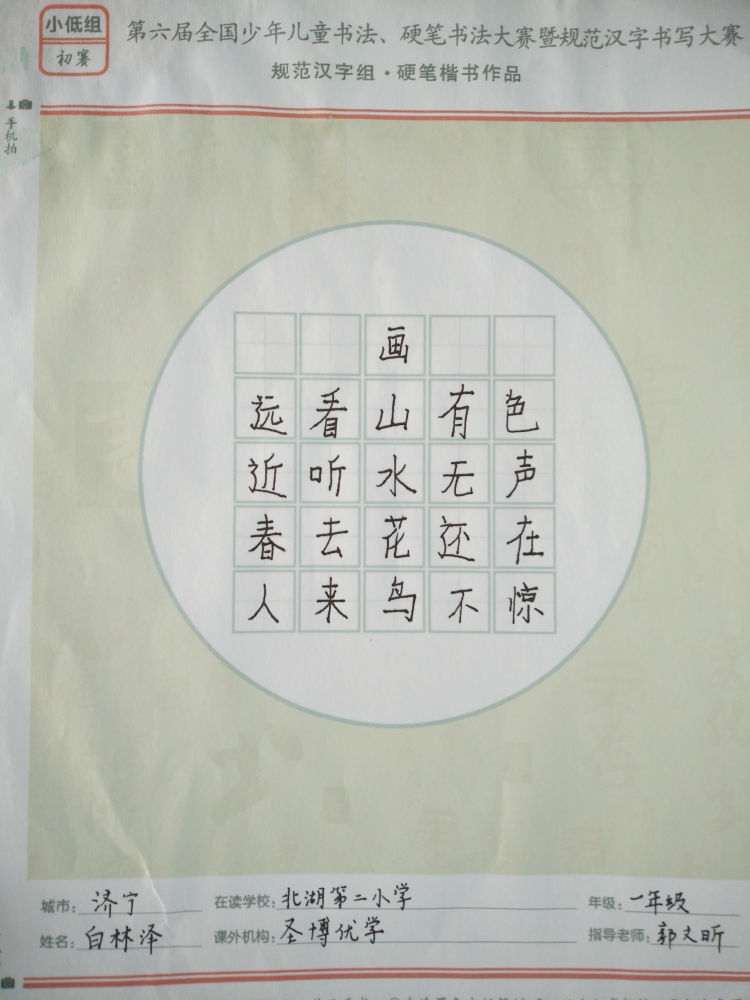 小低组
初赛
第六届全国少年儿童书法、硬笔书法大赛暨规范汉字书写大赛
规范汉字组·硬笔楷书作品
手机拍
画
远看山有色
近听水无声
春去花还在
人来鸟不惊
城市：济宁 在读学校：北湖第二小学 年级：一年级
姓名：白林泽 课外机构：圣博优学 指导老师：郭文昕